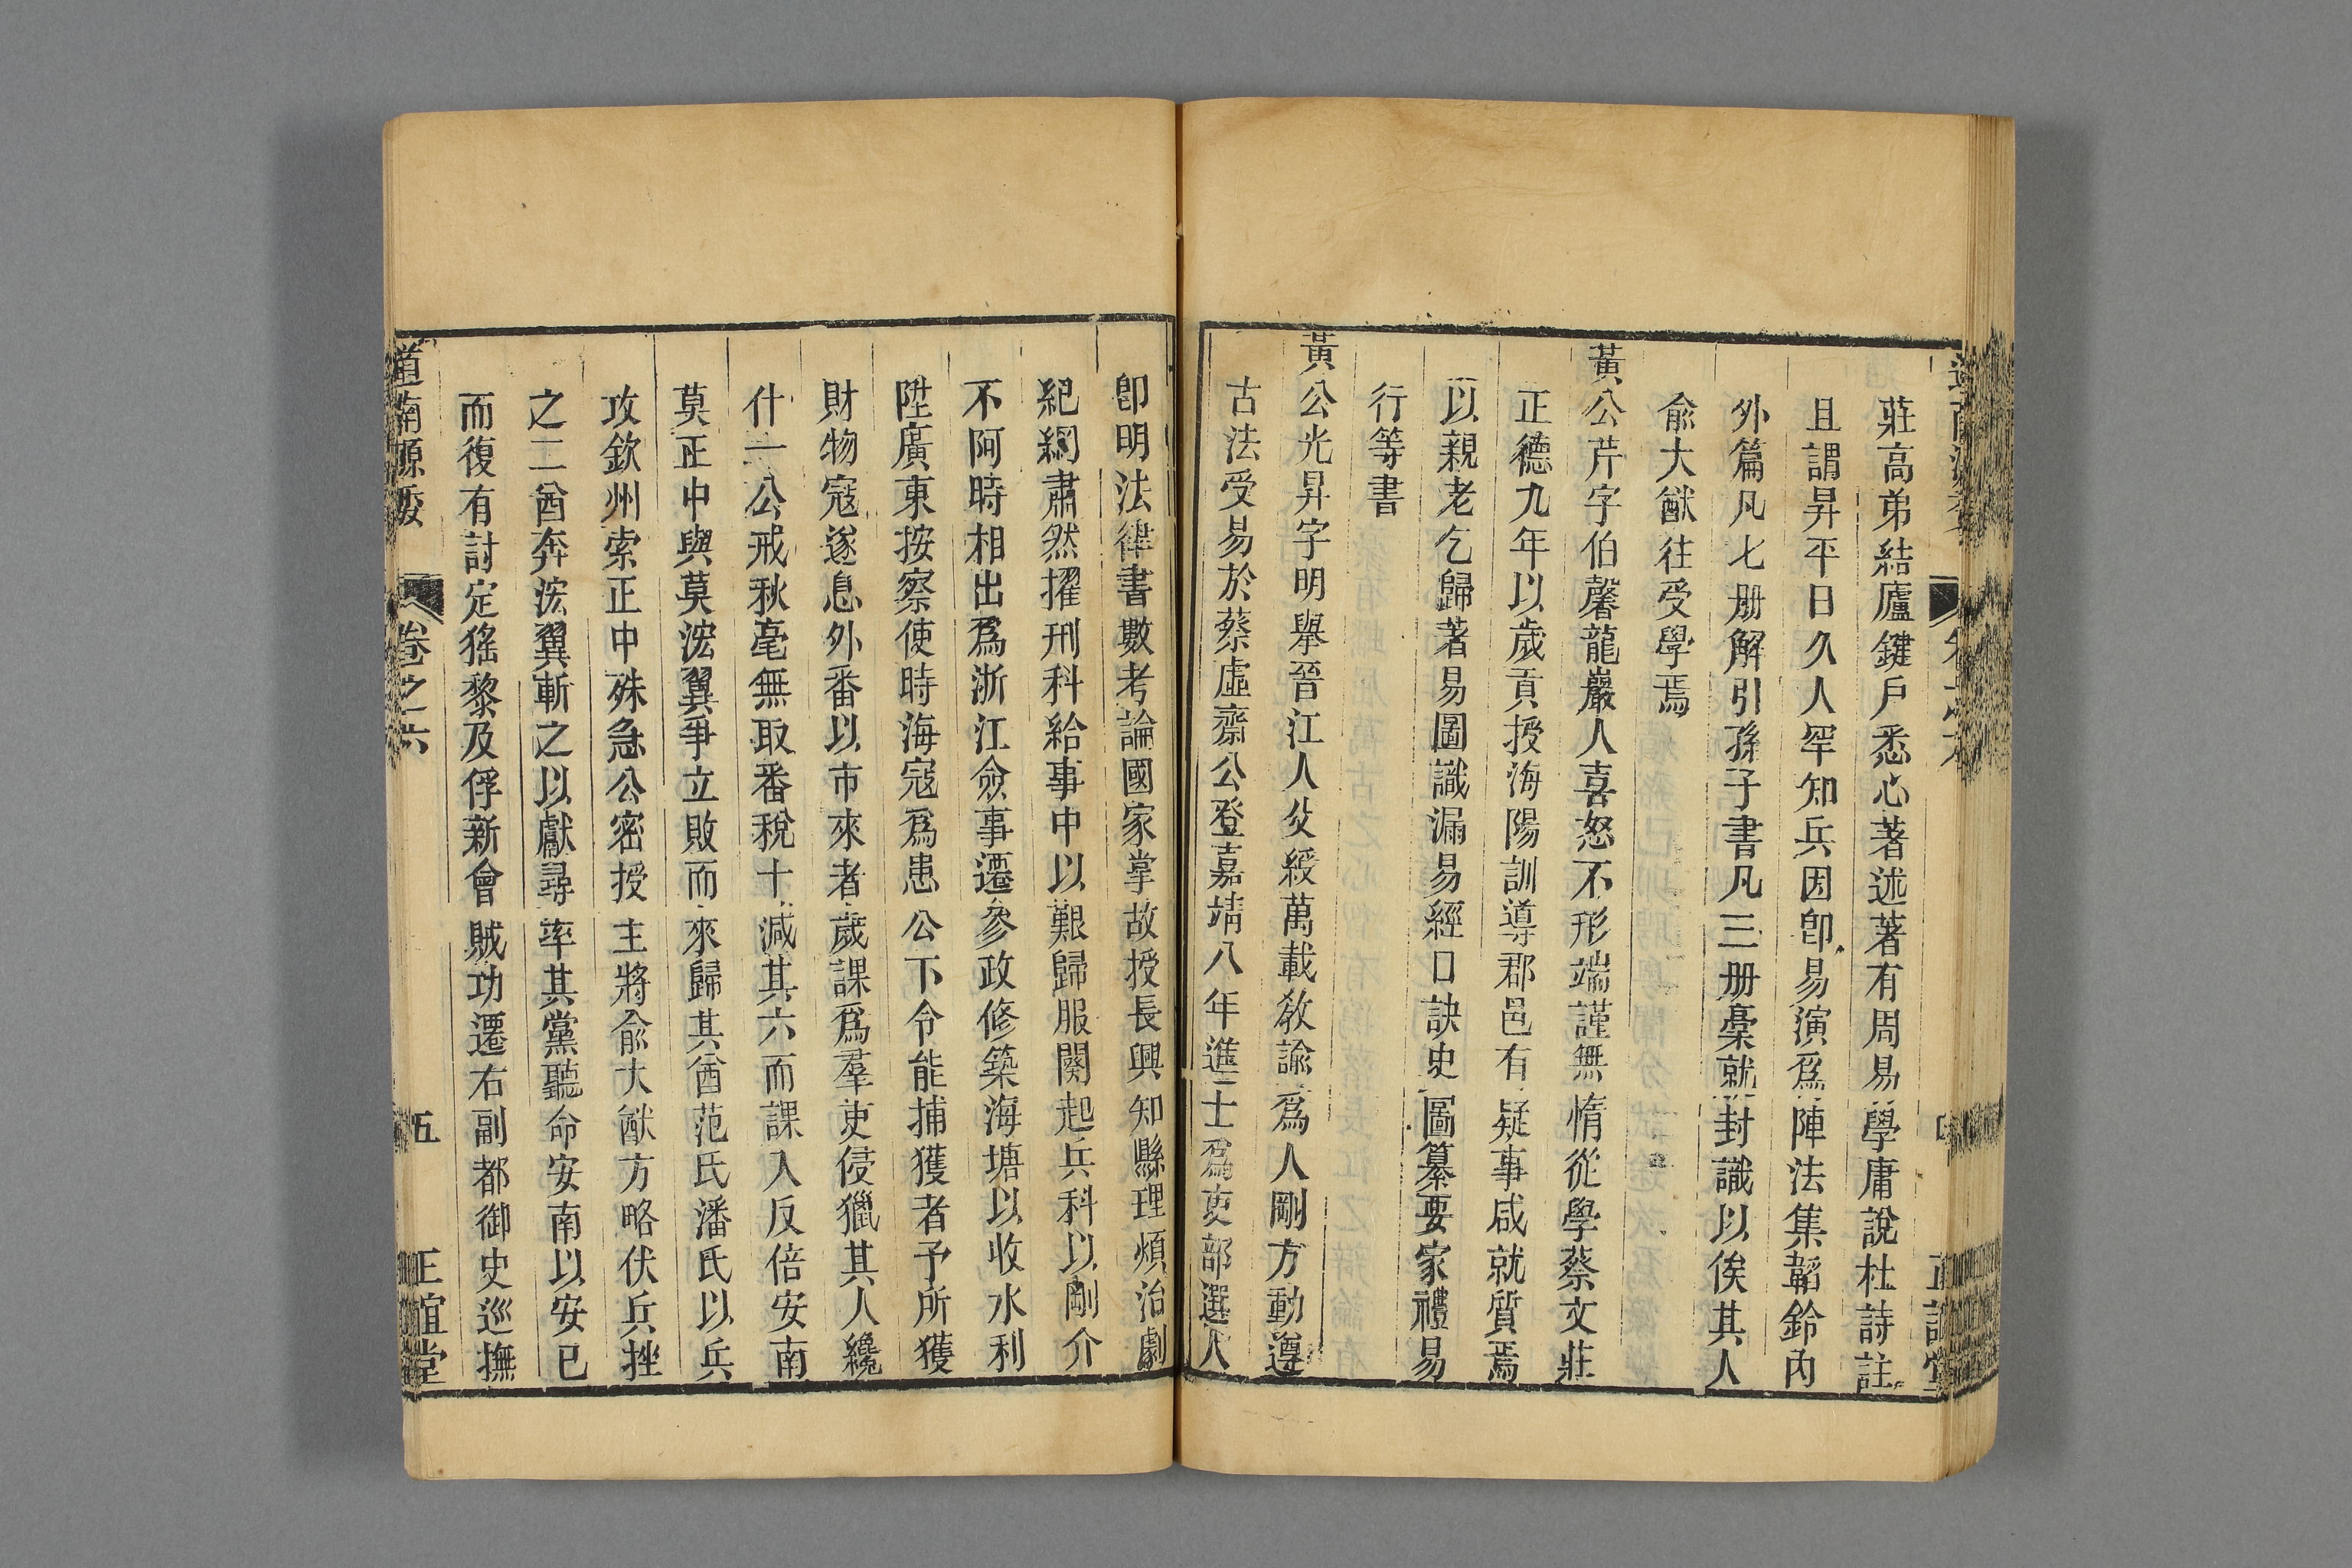 莊高弟結廬鍵戶悉心著述著有周易學庸說杜詩註
且謂昇平日久人罕知兵因卽易演爲陣法集韜鈴內
外篇凡七册解引孫子書凡三册槀就封識以俟其人
俞大猷往受學焉
黃公芹字伯馨龍巖人喜怒不形端謹無惰從學蔡文莊
正德九年以歲貢授海陽訓導郡邑有疑事咸就質焉
以親老乞歸著易圖識漏易經口訣史圖纂要家禮易
行等書
黃公光昇字明舉晉江人父綬萬載敎諭爲人剛方動遵
古法受易於蔡虛齋公登嘉靖八年進士爲吏部選人
卽明法律書數考論國家掌故授長興知縣理煩治劇
紀綱肅然擢刑科給事中以艱歸服闋起兵科以剛介
不阿時相出爲浙江僉事遷參政修築海塘以收水利
陞廣東按察使時海寇爲患公下令能捕獲者予所獲
財物寇遂息外番以市來者歲課爲羣吏侵獵其人纔
什一公戒秋毫無取番稅十減其六而課入反倍安南
莫正中與莫浤翼爭立敗而來歸其酋范氏潘氏以兵
攻欽州索正中殊急公密授主將俞大猷方略伏兵挫
之二酋奔浤翼斬之以獻尋率其黨聽命安南以安已
而復有討定猺黎及俘新會賊功遷右副都御史巡撫
道南源委 卷之六 五 正誼堂